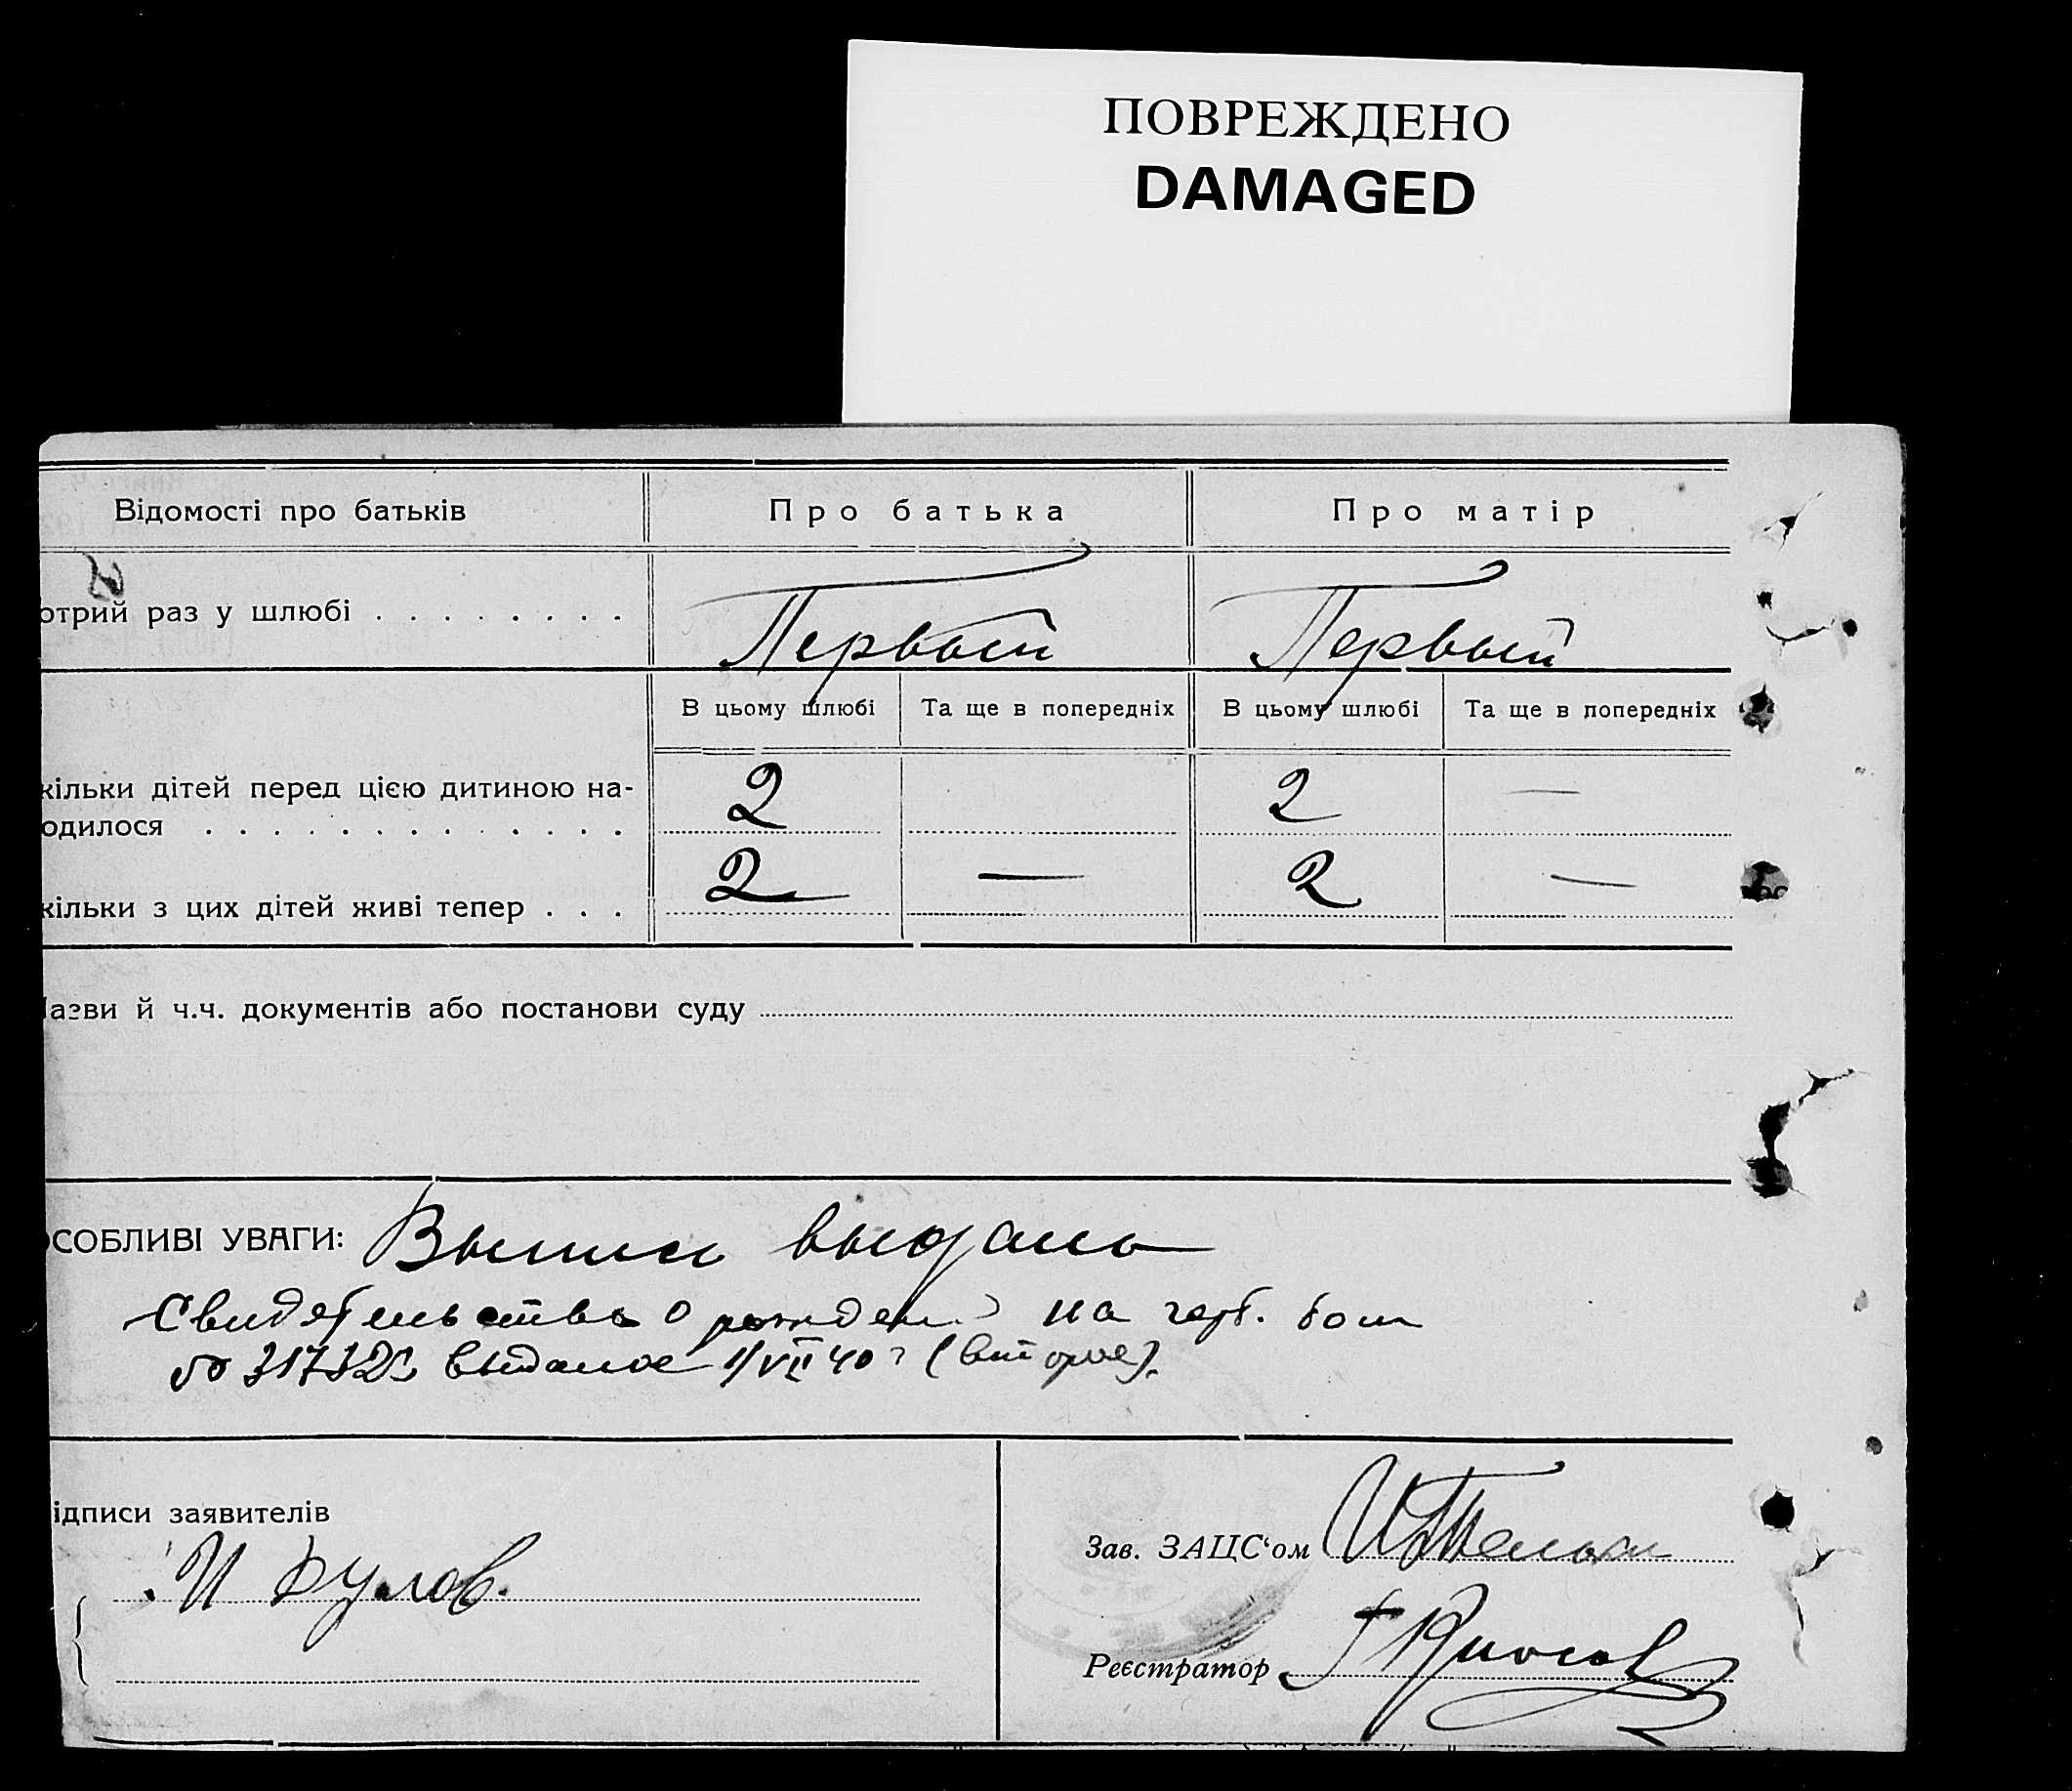 ПОВРЕЖДЕНО
DAMAGED
Відомості про батьків Про батька Про матір
отрий раз у шлюбі . . . . . . . . Первый Первый
В цьому шлюбі Та ще в попередніх В цьому шлюбі Та ще в попередніх
кільки дітей перед цією дитиною на- 2 2 —
одилося . . . . . . . . . . . . .
кільки з цих дітей живі тепер . . . 2 — 2 —
азви й ч.ч. документів або постанови суду
СОБЛИВІ УВАГИ: Выпись выдана
Свидетельство о рожден. на герб.
выданое VII 40 г (второе).
ідписи заявителів
И
Зав. ЗАЦС'ом
Реєстратор